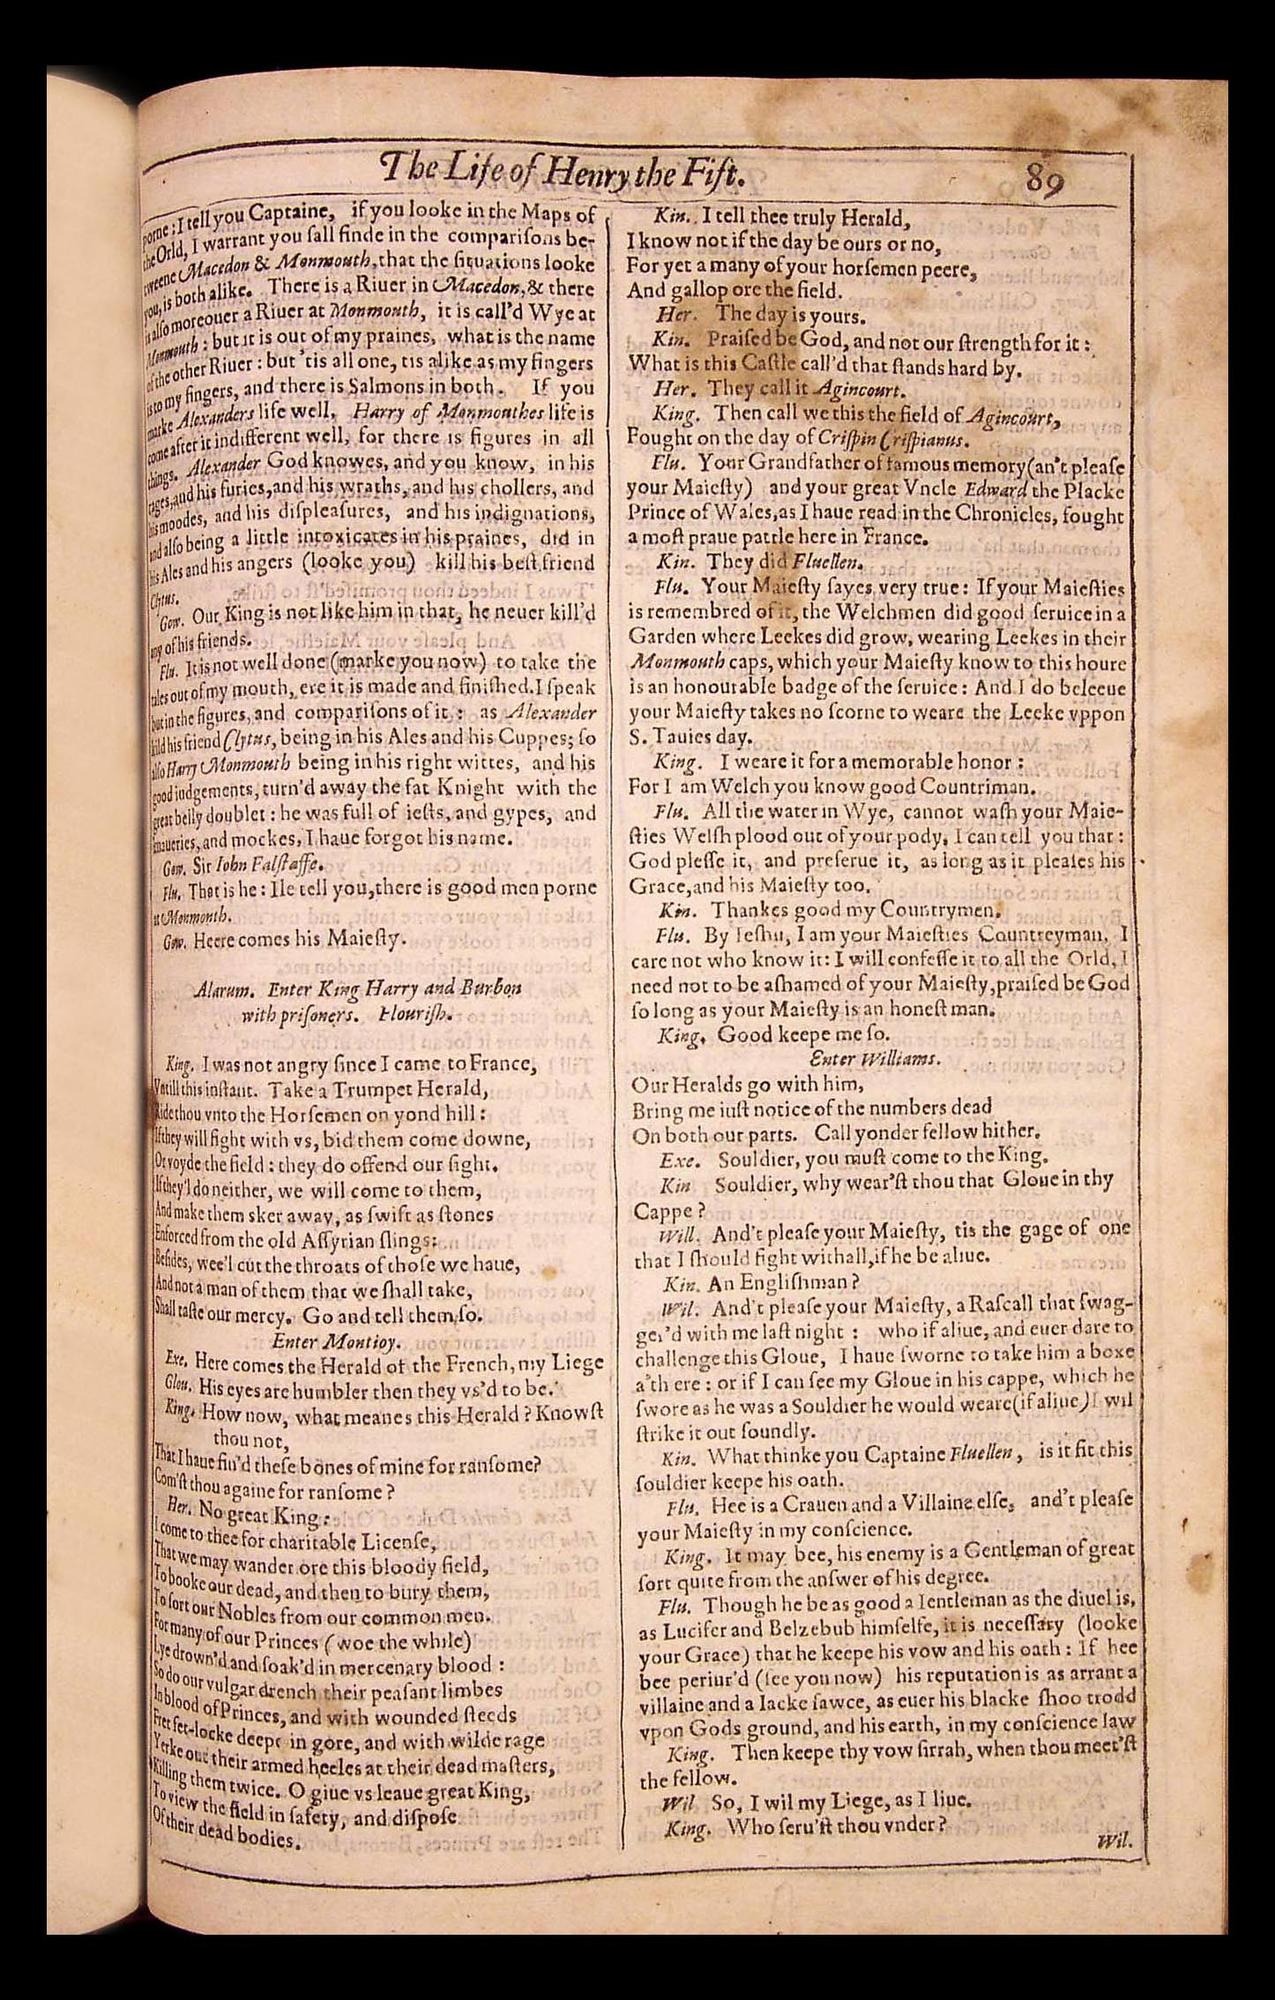 The Life of Henry the Fift.
89
porne; I tell you Captaine, if you looke in the Maps of
the Orld, I warrant you sall finde in the comparisons be-
tweene Macedon & Monmouth, that the situations looke
you, is both alike. There is a Riuer in Macedon, & there
is also moreouer a Riuer at Monmouth, it is call'd Wye at
Monmouth: but it is out of my praines, what is the name
of the other Riuer: but 'tis all one, tis alike as my fingers
is to my fingers, and there is Salmons in both. If you
marke Alexanders life well, Harry of Monmouthes life is
come after it indifferent well, for there is figures in all
things. Alexander God knowes, and you know, in his
rages, and his furies, and his wraths, and his chollers, and
his moodes, and his displeasures, and his indignations,
and also being a little intoxicates in his praines, did in
his Ales and his angers (looke you) kill his best friend
Clytus.
Gow. Our King is not like him in that, he neuer kill'd
any of his friends.
Flu. It is not well done (marke you now) to take the
tales out of my mouth, ere it is made and finished. I speak
but in the figures, and comparisons of it: as Alexander
kild his friend Clytus, being in his Ales and his Cuppes; so
also Harry Monmouth being in his right wittes, and his
good iudgements, turn'd away the fat Knight with the
great belly doublet: he was full of iests, and gypes, and
knaueries, and mockes, I haue forgot his name.
Gow. Sir Iohn Falstaffe.
Flu. That is he: Ile tell you, there is good men porne
at Monmouth.
Gow. Heere comes his Maiesty.
Alarum. Enter King Harry and Burbon
with prisoners. Flourish.
King. I was not angry since I came to France,
Vntill this instant. Take a Trumpet Herald,
Ride thou vnto the Horsemen on yond hill:
If they will fight with vs, bid them come downe,
Or voyde the field: they do offend our sight.
If they'l do neither, we will come to them,
And make them sker away, as swift as stones
Enforced from the old Assyrian slings:
Besides, wee'l cut the throats of those we haue,
And not a man of them that we shall take,
Shall taste our mercy. Go and tell them so.
Enter Montioy.
Exe. Here comes the Herald of the French, my Liege
Glou. His eyes are humbler then they vs'd to be.
King. How now, what meanes this Herald? Knowst
thou not,
That I haue fin'd these bones of mine for ransome?
Com'st thou againe for ransome?
Her. No great King:
I come to thee for charitable License,
That we may wander ore this bloody field,
To booke our dead, and then to bury them,
To sort our Nobles from our common men.
For many of our Princes (woe the while)
Lye drown'd and soak'd in mercenary blood:
So do our vulgar drench their peasant limbes
In blood of Princes, and with wounded steeds
Fret fet-locke deepe in gore, and with wilde rage
Yerke out their armed heeles at their dead masters,
Killing them twice. O giue vs leaue great King,
To view the field in safety, and dispose
Of their dead bodies.
Kin. I tell thee truly Herald,
I know not if the day be ours or no,
For yet a many of your horsemen peere,
And gallop ore the field.
Her. The day is yours.
Kin. Praised be God, and not our strength for it:
What is this Castle call'd that stands hard by.
Her. They call it Agincourt.
King. Then call we this the field of Agincourt,
Fought on the day of Crispin Crispianus.
Flu. Your Grandfather of famous memory (an't please
your Maiesty) and your great Vncle Edward the Placke
Prince of Wales, as I haue read in the Chronicles, fought
a most praue pattle here in France.
Kin. They did Fluellen.
Flu. Your Maiesty sayes very true: If your Maiesties
is remembred of it, the Welchmen did good seruice in a
Garden where Leekes did grow, wearing Leekes in their
Monmouth caps, which your Maiesty know to this houre
is an honourable badge of the seruice: And I do beleeue
your Maiesty takes no scorne to weare the Leeke vppon
S. Tauies day.
King. I weare it for a memorable honor:
For I am Welch you know good Countriman.
Flu. All the water in Wye, cannot wash your Maie-
sties Welsh plood out of your pody, I can tell you that:
God plesse it, and preserue it, as long as it pleases his
Grace, and his Maiesty too.
Kin. Thankes good my Countrymen.
Flu. By Ieshu, I am your Maiesties Countreyman, I
care not who know it: I will confesse it to all the Orld, I
need not to be ashamed of your Maiesty, praised be God
so long as your Maiesty is an honest man.
King. Good keepe me so.
Enter Williams.
Our Heralds go with him,
Bring me iust notice of the numbers dead
On both our parts. Call yonder fellow hither.
Exe. Souldier, you must come to the King.
Kin Souldier, why wear'st thou that Gloue in thy
Cappe?
Will. And't please your Maiesty, tis the gage of one
that I should fight withall, if he be aliue.
Kin. An Englishman?
Wil. And't please your Maiesty, a Rascall that swag-
ger'd with me last night: who if aliue, and euer dare to
challenge this Gloue, I haue sworne to take him a boxe
a'th ere: or if I can see my Gloue in his cappe, which he
swore as he was a Souldier he would weare (if aliue) I wil
strike it out soundly.
Kin. What thinke you Captaine Fluellen, is it fit this
souldier keepe his oath.
Flu. Hee is a Crauen and a Villaine else, and't please
your Maiesty in my conscience.
King. It may bee, his enemy is a Gentleman of great
sort quite from the answer of his degree.
Flu. Though he be as good a Ientleman as the diuel is,
as Lucifer and Belzebub himselfe, it is necessary (looke
your Grace) that he keepe his vow and his oath: If hee
bee periur'd (see you now) his reputation is as arrant a
villaine and a Iacke sawce, as euer his blacke shoo trodd
vpon Gods ground, and his earth, in my conscience law
King. Then keepe thy vow sirrah, when thou meet'st
the fellow.
Wil. So, I wil my Liege, as I liue.
King. Who seru'st thou vnder?
Wil.